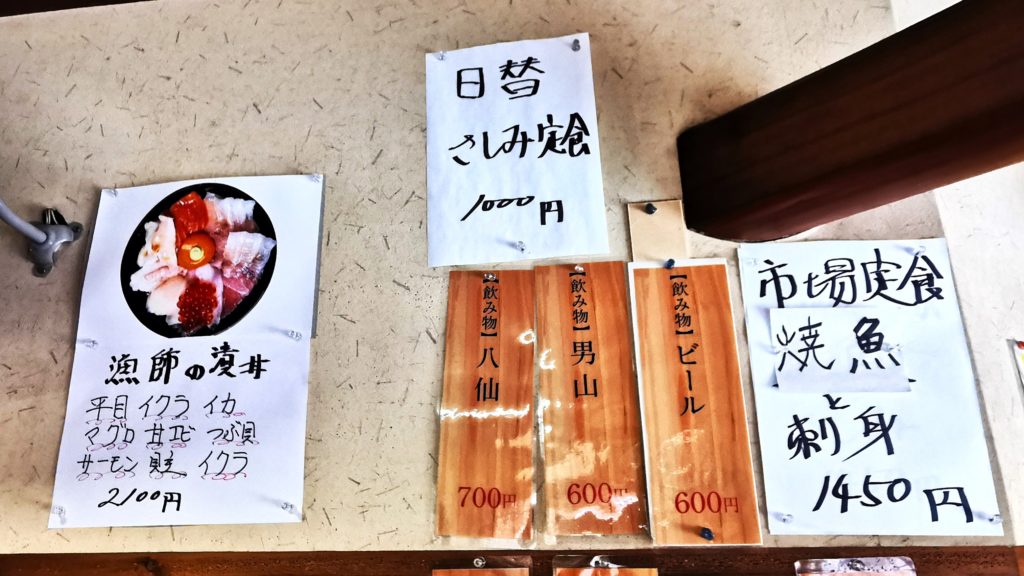 日替
さしみ定食
1000円
漁師の凌丼
平目 イクラ イカ
マグロ 丼エビ つぶ貝
サーモン イクラ
2100円
【飲み物】八仙
700円
【飲み物】男山
600円
【飲み物】ビール
600円
市場定食
焼魚
と
刺身
1450円